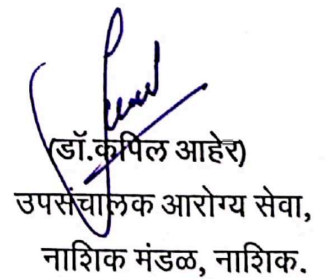 (डॉ.कपिल आहेर)
उपसंचालक आरोग्य सेवा,
नाशिक मंडळ, नाशिक.